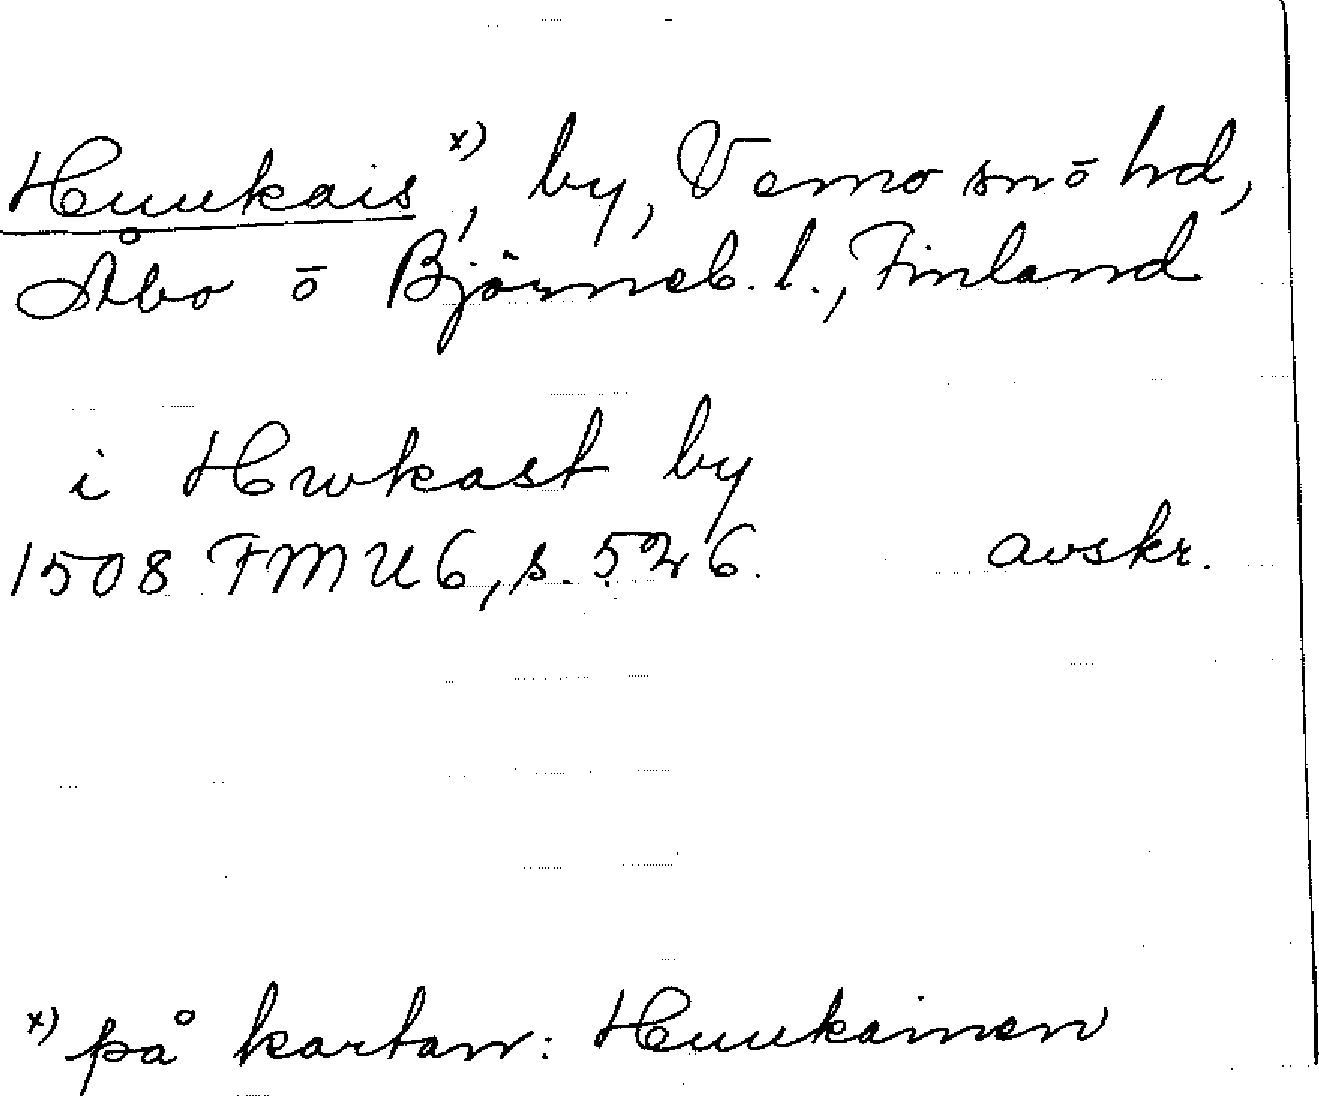 Huukais x), by, Vemo sn ō hd,
Åbo ō Björneb. l., Finland
i Hwkast by
1508 FMU 6, s. 526. avskr.
x) på kartan: Huukainen